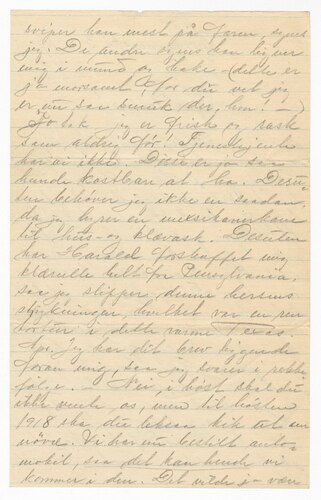 sviper han mest på Faren, synes
jeg. De andre synes han lig ner
mig i mund og hake – (dette er
jo morsomt for du vet jeg
er nu saa smuk der, hm! –)
Jo tak jeg er frisk og rask
som aldrig før! Tjenestejente
har vi ikke. Disse er jo saa
kostbare at ha. Desu-
den behøver jeg ikke en saadan,
da jeg hyrer en meksikanerinne
til hus- og klævask. Desuten
har Harald forskaffet mig
klærulle helt fra Pensylvania.
saa jeg slipper denne hersens
strykningen, hvilket var en ren
tortur i dette varme Texas.
Apr. Jeg har dit brev liggende
foran mig, saa jeg svarer i rekke
følge. Nei, i høst skal du
ikke vente os, men til høsten
1918 ska du loksaa kik til en
növe. Vi har nu bestilt auto-
mobil, saa det kan hende vi
kommer i den. Det vilde jo være